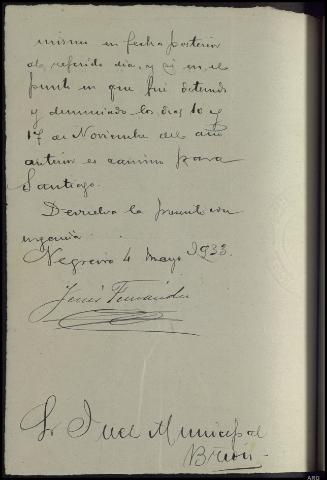 mismo en fecha posterior
al referido dia, y si en el
punto en que fui detenido
y denunciado los dias 10 y
17 de Noviembre del año
anterior es camino para
Santiago.
Devuelva la presente con
urgencia.
Negreira 4 mayo 1933.
Jesús Fernández
Sr Juez Municipal
Brión
ARG